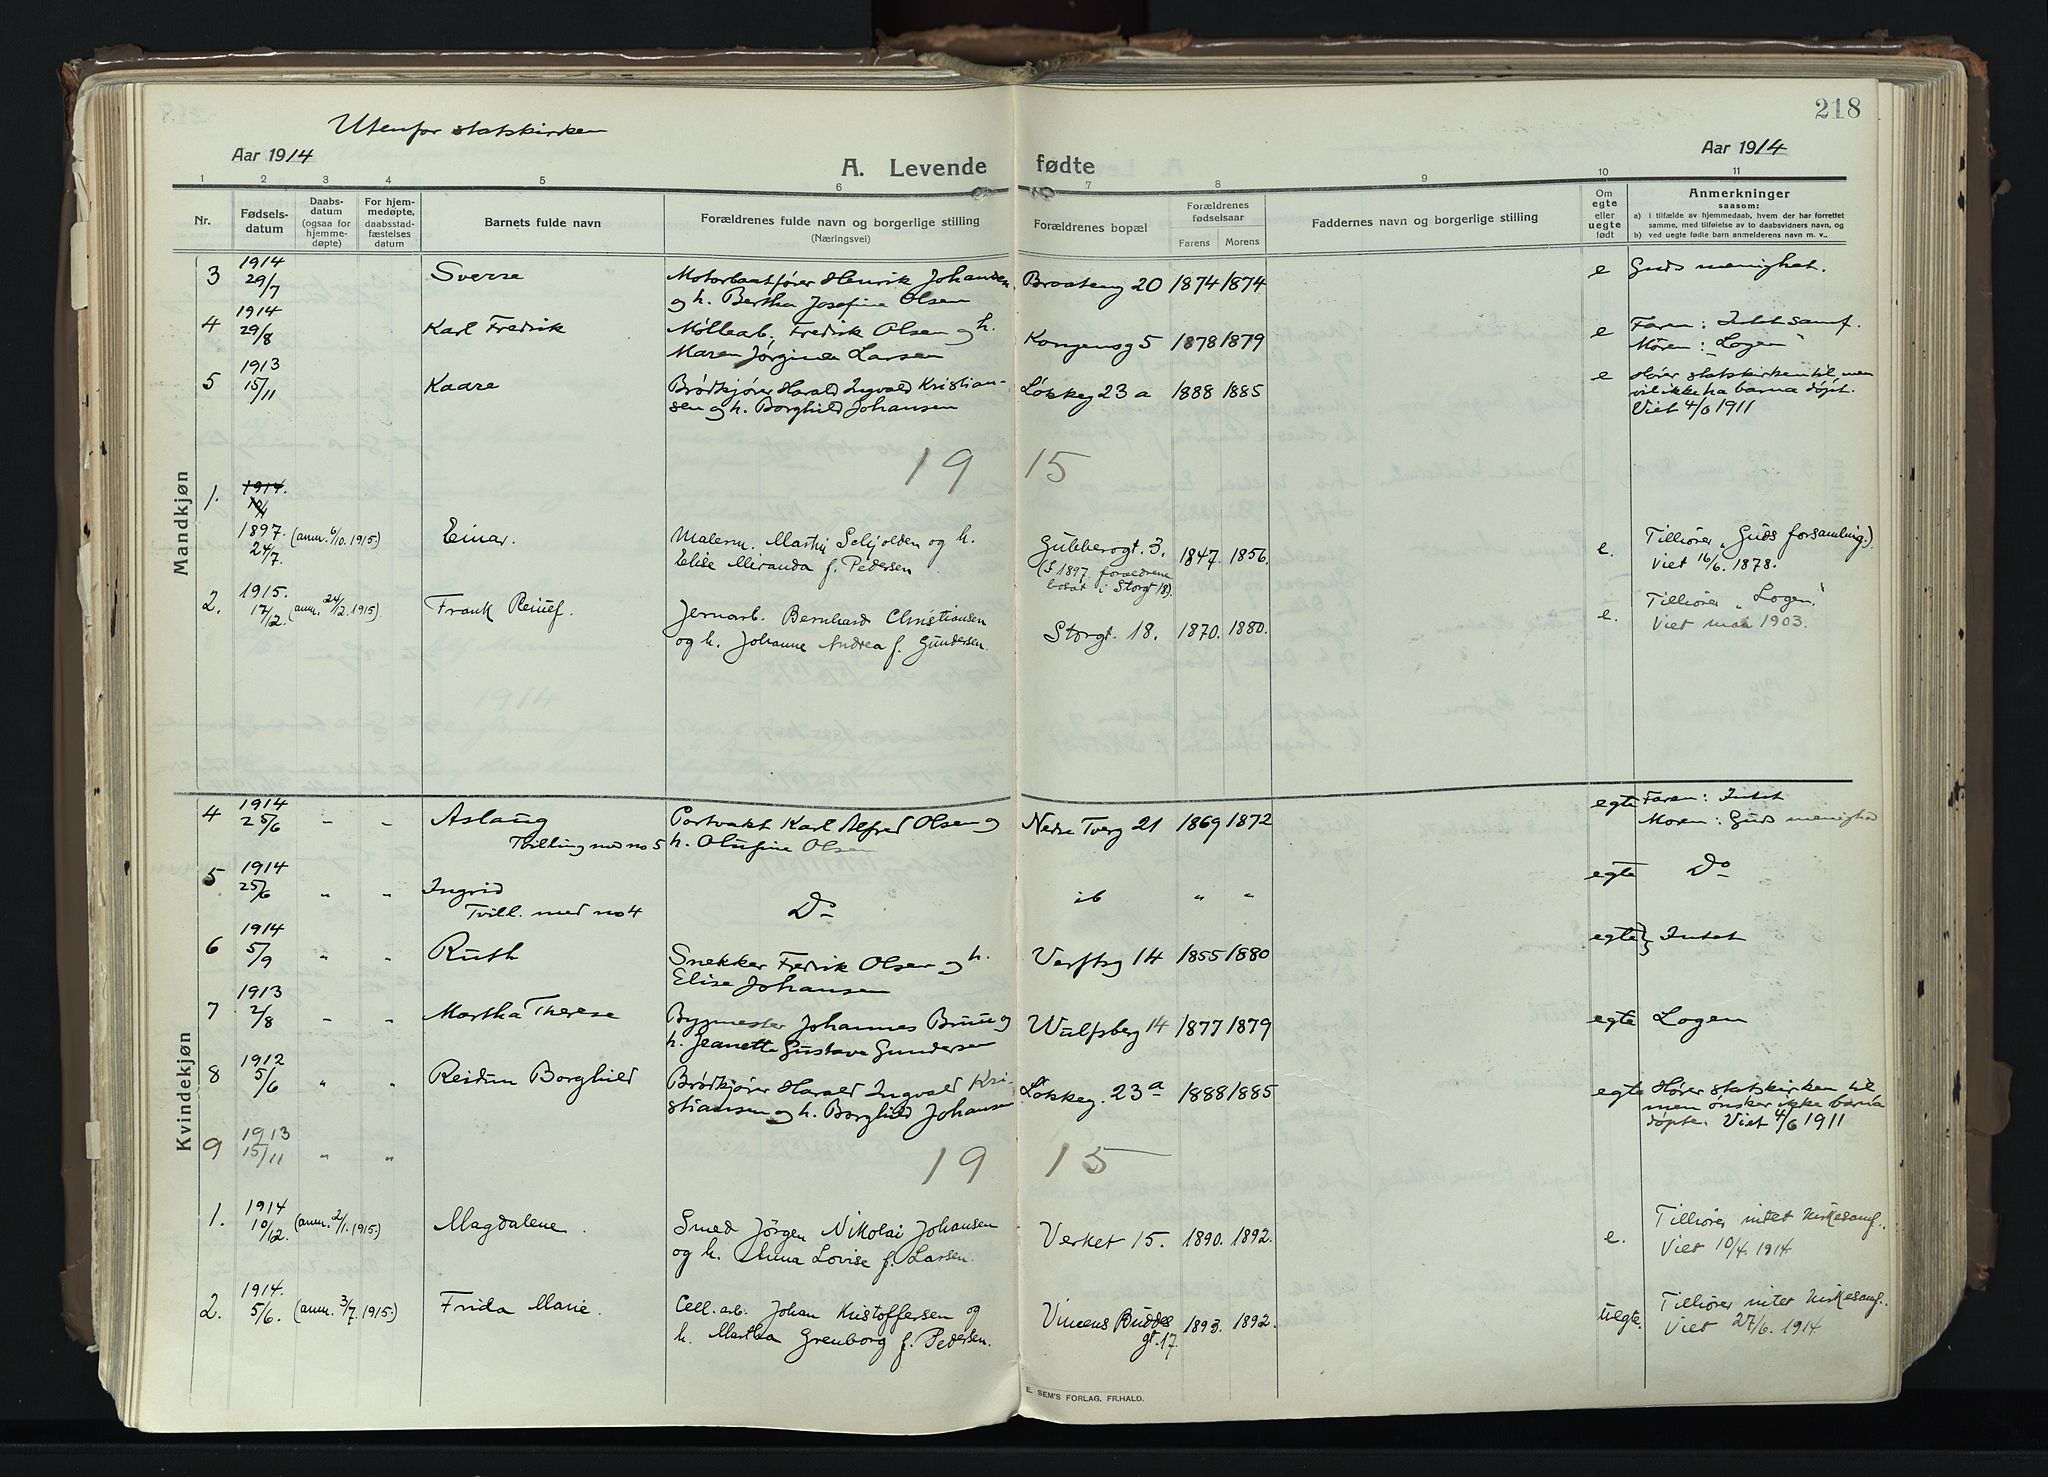 218
Utenfor statskirken
Aar 1914
A. Levende fødte
Aar 1914
1 2 3 4 5 6 7 8 9 10 11
Nr.
Fødsels-
datum
Daabs-
datum
(ogsaa for
hjemme-
døpte)
For hjem-
medøpte,
daabsstad-
fæstelses
datum
Barnets fulde navn
Forældrenes fulde navn og borgerlige stilling
(Næringsvei)
Forældrenes bopæl
Forældrenes
fødselsaar
Farens Morens
Faddernes navn og borgerlige stilling
Om
egte
eller
uegte
født
Anmerkninger
saasom:
a) i tilfælde av hjemmedaab, hvem der har forrettet
samme, med tilføielse av to daabsvidners navn, og
b) ved uegte fødte barn anmelderens navn m. v..
Mandkjøn
3 1914 29/7 Sverre Motorbaatfører Henrik Johansen Braateng 20 1874 1874 e Guds menighet.
og h. Bertha Josefine Olsen
4 1914 29/8 Karl Fredrik Møllearb. Fredrik Olsen og h. Kongensg 5 1878 1879 e Faren: Intet samf.
Maren Jørgine Larsen Moren: "Logen"
5 1913 15/11 Kaare Brødkjører Harald Ingvald Kristian- Løkkeg 23 a 1888 1885 e Hører statskirken til men
sen og h. Borghild Johansen vil ikke ha barna døpt.
Viet 4/6 1911
19 15
1. 1914.
1897. 24/7. (anm. 6/10. 1915.) Einar. Malerm. Martin Schjolden og h. Gubberogt. 3. 1847. 1856. e. Tilhører "Guds forsamling.)
Elise Miranda f. Pedersen (I 1897 forældrene Viet 16/6. 1878.
bosat i Storgt 18).
2. 1915. 17/12. (anm. 24/2. 1915.) Frank Reinef. Jernarb. Bernhard Christiansen Storgt. 18. 1870. 1880. e. Tilhører "Logen."
og h. Johanne Andrea f. Gundersen. Viet mai 1903.
Kvindekjøn
4 1914 25/6 - - Aslaug Portvakt Karl Alfred Olsen og Nedre Tverg 21 1869 1872 egte Faren: Intet
Tvilling med no 5 h. Olufine Olsen Moren: Guds menighed
5 1914 25/6 " " Ingrid Do ib " " egte Do
Tvill. med no 4
6 1914 5/9 " " Ruth Snekker Fredrik Olsen og h. Verftsg 14 1855 1880 egte Intet
Elise Johansen
7 1913 2/8 - " Martha Therese Bygmester Johannes Bruu og Wulfsberg 14 1877 1879 egte Logen
h. Jeanette Gustava Gundersen
8 1912 5/6 " " Reidun Borghild Brødkjører Harald Ingvald Kri- Løkkeg. 23 a 1888 1885 egte Hører statskirken til
stiansen og h. Borghild Johansen men ønsker ikke barna
døpte. Viet 4/6 1911
9 1913 15/11 " "
19 15
1. 1914 10/12. (anm. 2/1. 1915.) Magdalene. Smed Jørgen Nikolai Johansen Verket 15. 1890. 1892. e. Tilhører intet kirkesamf.
og h. Anna Lovise f. Larsen. Viet 10/4. 1914
2. 1914. 5/6. (anm. 3/7. 1915.) Frida Marie. Cell. arb. Johan Kristoffersen og Vincens Buddes 1893. 1892. uegte. Tilhører intet kirkesamf.
h. Martha Grenborg f. Pedersen. gt. 17 Viet 27/6. 1914.
E. SEM'S FORLAG, FR.HALD.